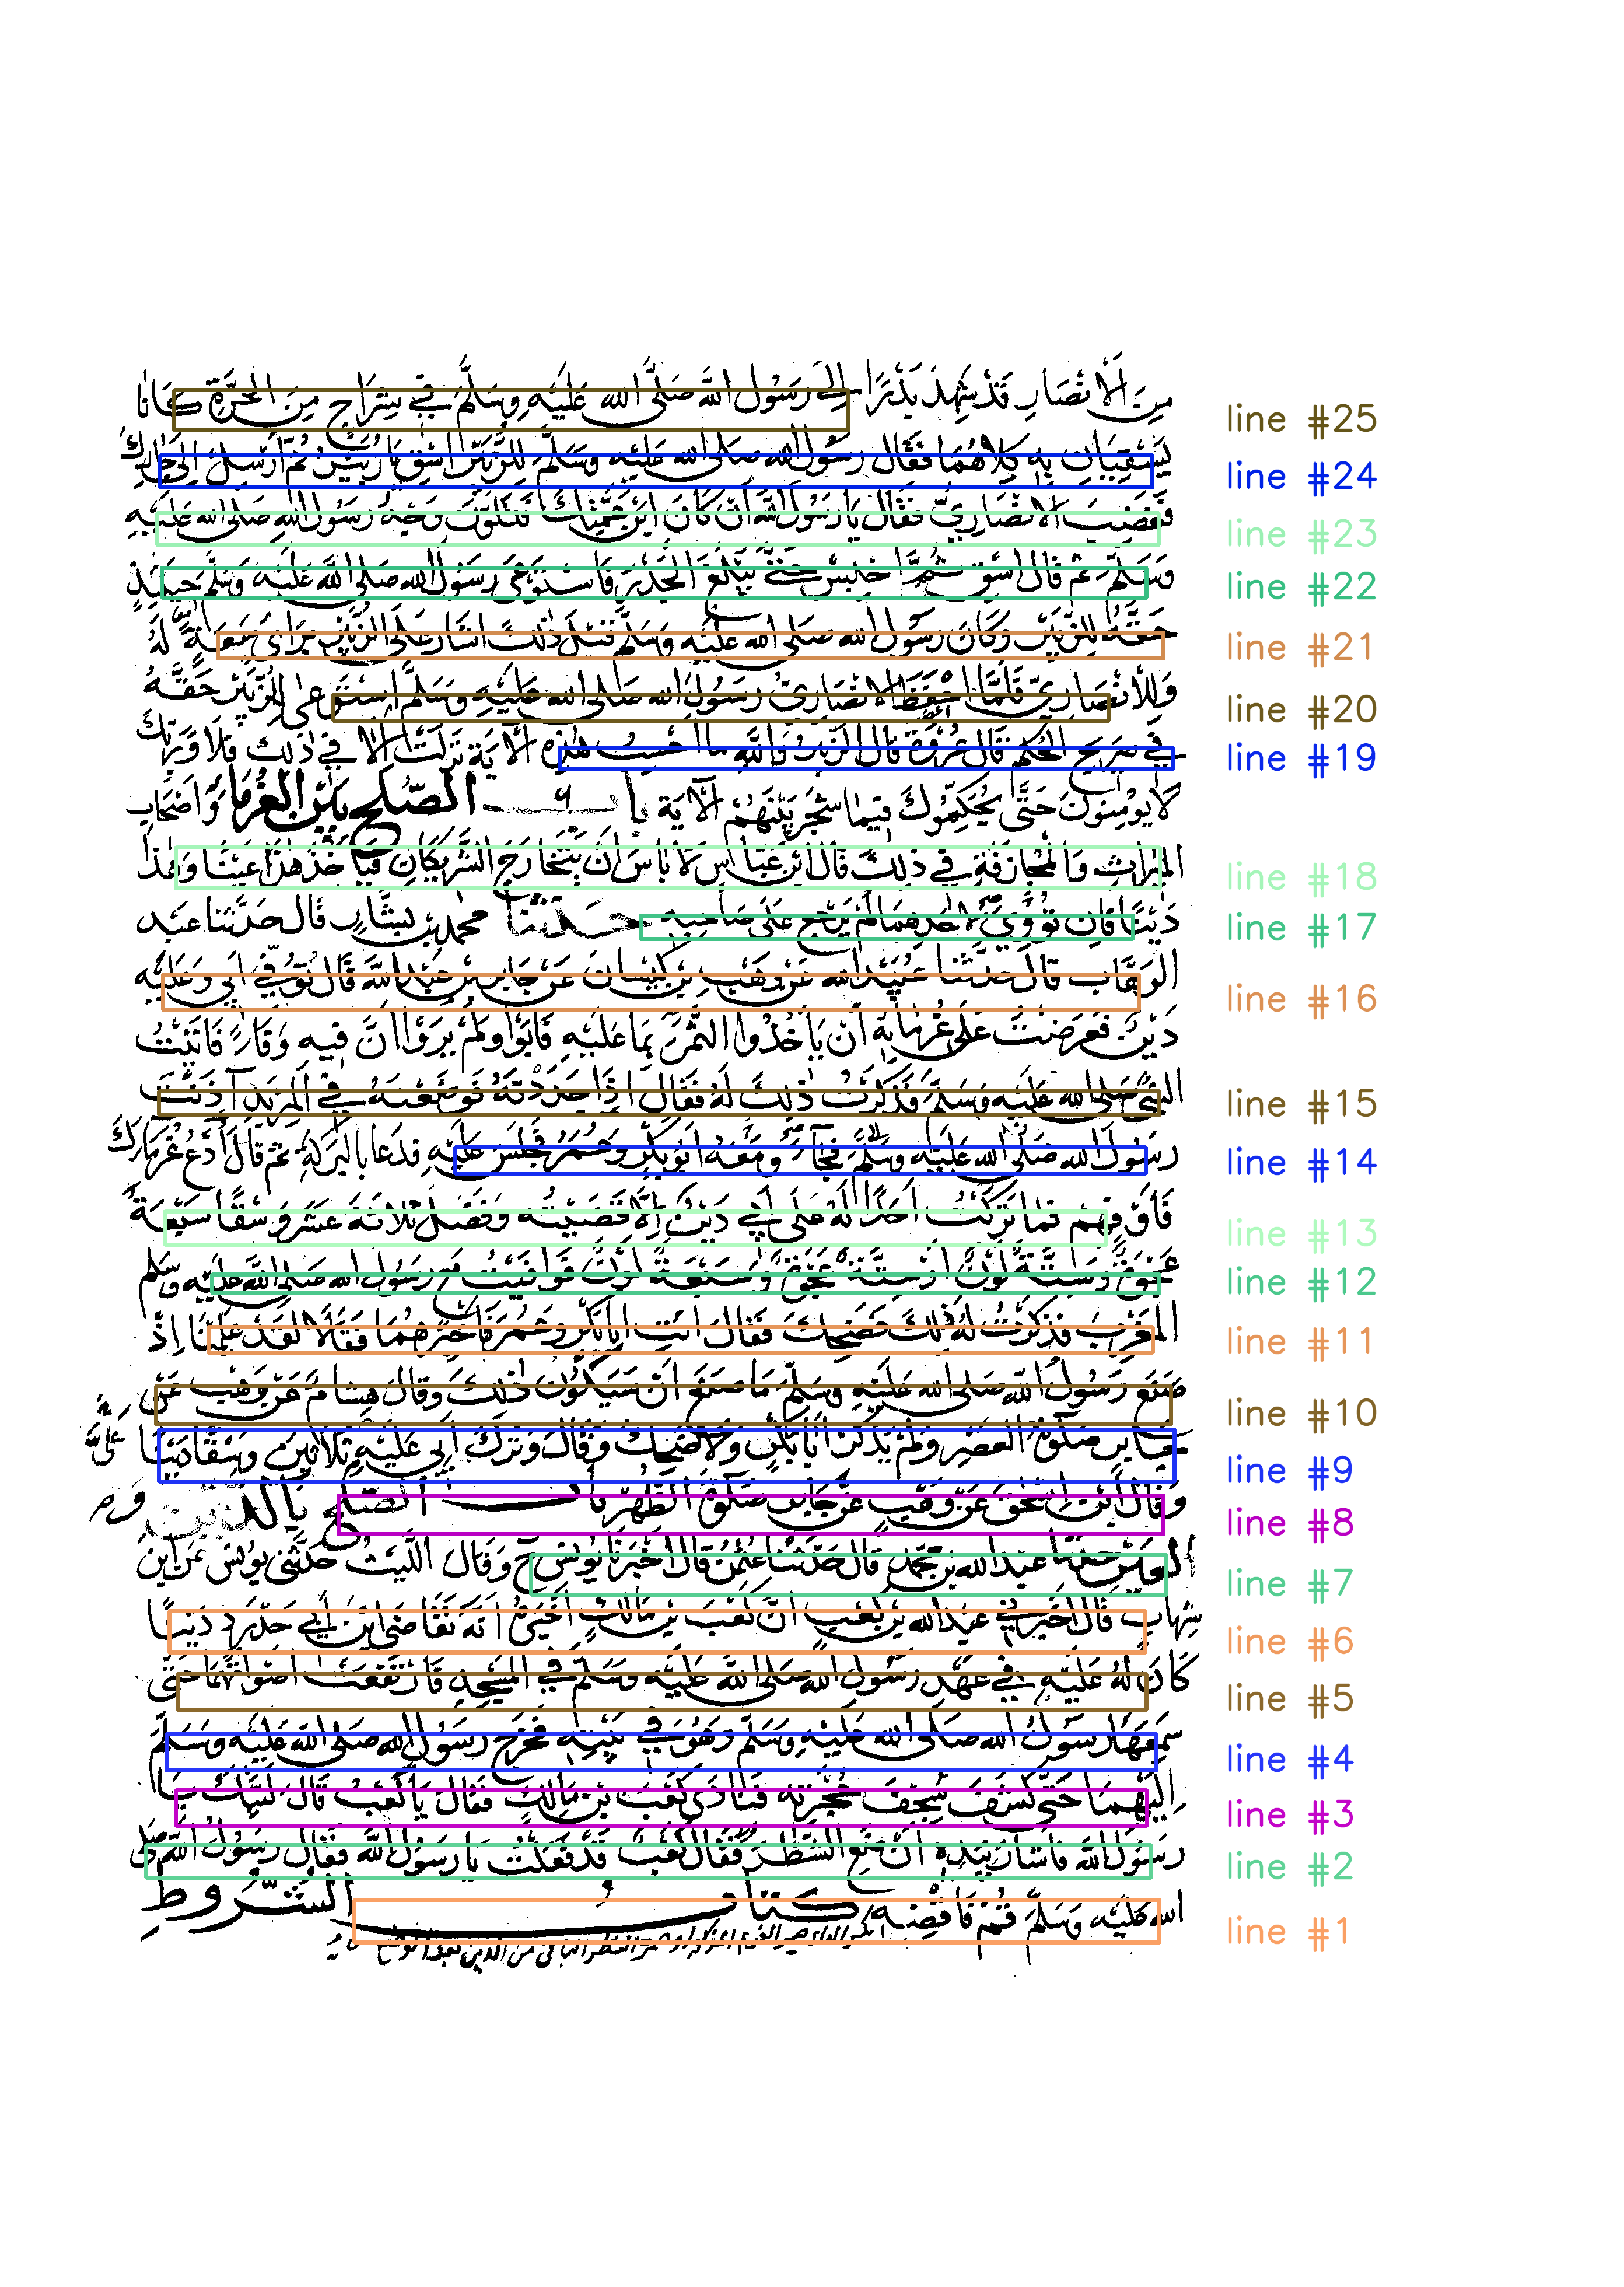 مِنَ الْاَنْصَارِ قَدْ شَهِدَ بَدْرًا اِلٰى رَسُوْلِ اللّٰهِ صَلَّى اللّٰهُ عَلَيْهِ وَسَلَّمَ فِيْ شِرَاجٍ مِنَ الْحَرَّةِ كَانَا line #25
يَسْقِيَانِ بِهٖ كِلَاهُمَا فَقَالَ رَسُوْلُ اللّٰهِ صَلَّى اللّٰهُ عَلَيْهِ وَسَلَّمَ لِلزُّبَيْرِ اسْقِ يَا زُبَيْرُ ثُمَّ اَرْسِلْ اِلٰى جَارِكَ line #24
فَغَضِبَ الْاَنْصَارِيُّ فَقَالَ يَا رَسُوْلَ اللّٰهِ اَنْ كَانَ ابْنَ عَمَّتِكَ فَتَلَوَّنَ وَجْهُ رَسُوْلِ اللّٰهِ صَلَّى اللّٰهُ عَلَيْهِ line #23
وَسَلَّمَ ثُمَّ قَالَ اسْقِ ثُمَّ احْبِسْ حَتّٰى يَبْلُغَ الْجَدْرَ فَاسْتَوْعٰى رَسُوْلُ اللّٰهِ صَلَّى اللّٰهُ عَلَيْهِ وَسَلَّمَ حِيْنَئِذٍ line #22
حَقَّهٗ لِلزُّبَيْرِ وَكَانَ رَسُوْلُ اللّٰهِ صَلَّى اللّٰهُ عَلَيْهِ وَسَلَّمَ قَبْلَ ذٰلِكَ اَشَارَ عَلَى الزُّبَيْرِ بِرَأْيٍ سَعَةٍ لَهٗ line #21
وَلِلْاَنْصَارِيِّ فَلَمَّا اَحْفَظَ الْاَنْصَارِيُّ رَسُوْلَ اللّٰهِ صَلَّى اللّٰهُ عَلَيْهِ وَسَلَّمَ اسْتَوْعٰى لِلزُّبَيْرِ حَقَّهٗ line #20
فِيْ صَرِيْحِ الْحُكْمِ قَالَ عُرْوَةُ قَالَ الزُّبَيْرُ وَاللّٰهِ مَا اَحْسِبُ هٰذِهِ الْاٰيَةَ نَزَلَتْ اِلَّا فِيْ ذٰلِكَ فَلَا وَرَبِّكَ line #19
لَا يُؤْمِنُوْنَ حَتّٰى يُحَكِّمُوْكَ فِيْمَا شَجَرَ بَيْنَهُمْ الْاٰيَةَ بَابُ الصُّلْحِ بَيْنَ الْغُرَمَاءِ وَاَصْحَابِ
الْمِيْرَاثِ وَالْمُجَازَفَةِ فِيْ ذٰلِكَ قَالَ ابْنُ عَبَّاسٍ لَا بَاْسَ اَنْ يَتَخَارَجَ الشَّرِيْكَانِ فَيَاْخُذَ هٰذَا عَيْنًا وَهٰذَا line #18
دَيْنًا فَاِنْ تَوِيَ لِاَحَدِهِمَا لَمْ يَرْجِعْ عَلٰى صَاحِبِهٖ حَدَّثَنَا مُحَمَّدُ بْنُ بَشَّارٍ قَالَ حَدَّثَنَا عَبْدُ line #17
الْوَهَّابِ قَالَ حَدَّثَنَا عُبَيْدُ اللّٰهِ عَنْ وَهْبِ بْنِ كَيْسَانَ عَنْ جَابِرِ بْنِ عَبْدِ اللّٰهِ قَالَ تُوُفِّيَ اَبِيْ وَعَلَيْهِ line #16
دَيْنٌ فَعَرَضْتُ عَلٰى غُرَمَائِهٖ اَنْ يَاْخُذُوا الثَّمَرَ بِمَا عَلَيْهِ فَاَبَوْا وَلَمْ يَرَوْا اَنَّ فِيْهِ وَفَاءً فَاَتَيْتُ
النَّبِيَّ صَلَّى اللّٰهُ عَلَيْهِ وَسَلَّمَ فَذَكَرْتُ ذٰلِكَ لَهٗ فَقَالَ اِذَا جَدَدْتَهٗ فَوَضَعْتَهٗ فِي الْمِرْبَدِ اٰذَنْتَ line #15
رَسُوْلَ اللّٰهِ صَلَّى اللّٰهُ عَلَيْهِ وَسَلَّمَ فَجَاءَ وَمَعَهٗ اَبُوْ بَكْرٍ وَعُمَرُ فَجَلَسَ عَلَيْهِ فَدَعَا بِالْبَرَكَةِ ثُمَّ قَالَ ادْعُ غُرَمَاءَكَ line #14
فَاَوْفِهِمْ فَمَا تَرَكْتُ اَحَدًا لَهٗ عَلٰى اَبِيْ دَيْنٌ اِلَّا قَضَيْتُهٗ وَفَضَلَ ثَلَاثَةَ عَشَرَ وَسْقًا سَبْعَةٌ line #13
عَجْوَةٌ وَسِتَّةٌ لَوْنٌ اَوْ سِتَّةٌ عَجْوَةٌ وَسَبْعَةٌ لَوْنٌ فَوَافَيْتُ مَعَ رَسُوْلِ اللّٰهِ صَلَّى اللّٰهُ عَلَيْهِ وَسَلَّمَ line #12
الْمَغْرِبَ فَذَكَرْتُ لَهٗ ذٰلِكَ فَضَحِكَ فَقَالَ ائْتِ اَبَا بَكْرٍ وَعُمَرَ فَاَخْبِرْهُمَا فَقَالَا لَقَدْ عَلِمْنَا اِذْ line #11
صَنَعَ رَسُوْلُ اللّٰهِ صَلَّى اللّٰهُ عَلَيْهِ وَسَلَّمَ مَا صَنَعَ اَنْ سَيَكُوْنُ ذٰلِكَ وَقَالَ هِشَامٌ عَنْ وَهْبٍ عَنْ line #10
جَابِرٍ صَلٰوةَ الْعَصْرِ وَلَمْ يَذْكُرْ اَبَا بَكْرٍ وَلَا ضَحِكَ وَقَالَ وَتَرَكَ اَبِيْ عَلَيْهِ ثَلَاثِيْنَ وَسْقًا دَيْنًا line #9
وَقَالَ ابْنُ اِسْحٰقَ عَنْ وَهْبٍ عَنْ جَابِرٍ صَلٰوةَ الظُّهْرِ بَابُ الصُّلْحِ بِالدَّيْنِ line #8
وَالْعَيْنِ حَدَّثَنَا عَبْدُ اللّٰهِ بْنُ مُحَمَّدٍ قَالَ حَدَّثَنَا عُثْمٰنُ قَالَ اَخْبَرَنَا يُوْنُسُ ح وَقَالَ اللَّيْثُ حَدَّثَنِيْ يُوْنُسُ عَنِ ابْنِ line #7
شِهَابٍ قَالَ اَخْبَرَنِيْ عَبْدُ اللّٰهِ بْنُ كَعْبٍ اَنَّ كَعْبَ بْنَ مَالِكٍ اَخْبَرَهٗ اَنَّهٗ تَقَاضَى ابْنَ اَبِيْ حَدْرَدٍ دَيْنًا line #6
كَانَ لَهٗ عَلَيْهِ فِيْ عَهْدِ رَسُوْلِ اللّٰهِ صَلَّى اللّٰهُ عَلَيْهِ وَسَلَّمَ فِي الْمَسْجِدِ فَارْتَفَعَتْ اَصْوَاتُهُمَا حَتّٰى line #5
سَمِعَهَا رَسُوْلُ اللّٰهِ صَلَّى اللّٰهُ عَلَيْهِ وَسَلَّمَ وَهُوَ فِيْ بَيْتِهٖ فَخَرَجَ رَسُوْلُ اللّٰهِ صَلَّى اللّٰهُ عَلَيْهِ وَسَلَّمَ line #4
اِلَيْهِمَا حَتّٰى كَشَفَ سِجْفَ حُجْرَتِهٖ فَنَادٰى كَعْبَ بْنَ مَالِكٍ فَقَالَ يَا كَعْبُ قَالَ لَبَّيْكَ يَا line #3
رَسُوْلَ اللّٰهِ فَاَشَارَ بِيَدِهٖ اَنْ ضَعِ الشَّطْرَ فَقَالَ كَعْبٌ قَدْ فَعَلْتُ يَا رَسُوْلَ اللّٰهِ فَقَالَ رَسُوْلُ اللّٰهِ صَلَّى line #2
اللّٰهُ عَلَيْهِ وَسَلَّمَ قُمْ فَاقْضِهٖ كِتَابُ الشُّرُوْطِ line #1